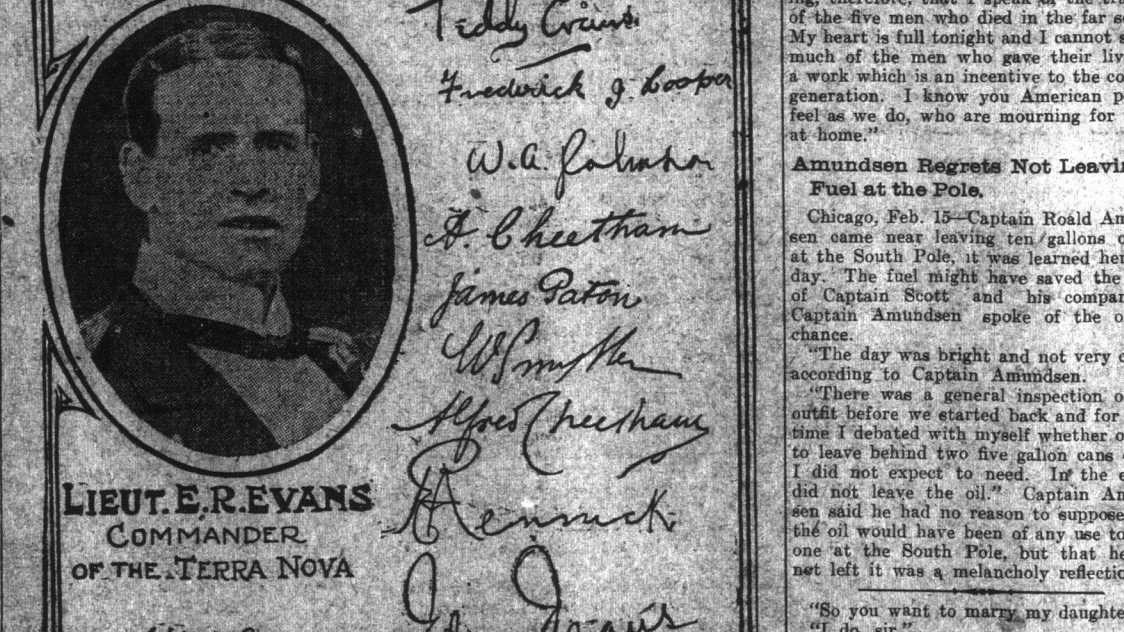 LIEUT. E.R. EVANS
COMMANDER
OF THE TERRA NOVA
Teddy Evans.
Frederick J. Hooper
W.A.
A. Cheetham
James Paton
Alfred Cheetham
Rennick
of the five men who died in the far
My heart is full tonight and I cannot
much of the men who gave their
a work which is an incentive to the
generation. I know you American
feel as we do, who are mourning for
at home."
Amundsen Regrets Not
Fuel at the Pole.
Chicago, Feb. 15—Captain Roald
sen came near leaving ten gallons
at the South Pole, it was learned
day. The fuel might have saved the
of Captain Scott and his
Captain Amundsen spoke of the
chance.
"The day was bright and not very
according to Captain Amundsen.
"There was a general inspection
outfit before we started back and for
time I debated with myself whether
to leave behind two five gallon cans
I did not expect to need. In the
did not leave the oil." Captain
sen said he had no reason to suppose
the oil would have been of any use to
one at the South Pole, but that
not left it was a melancholy
"So you want to marry my
"I do, sir."